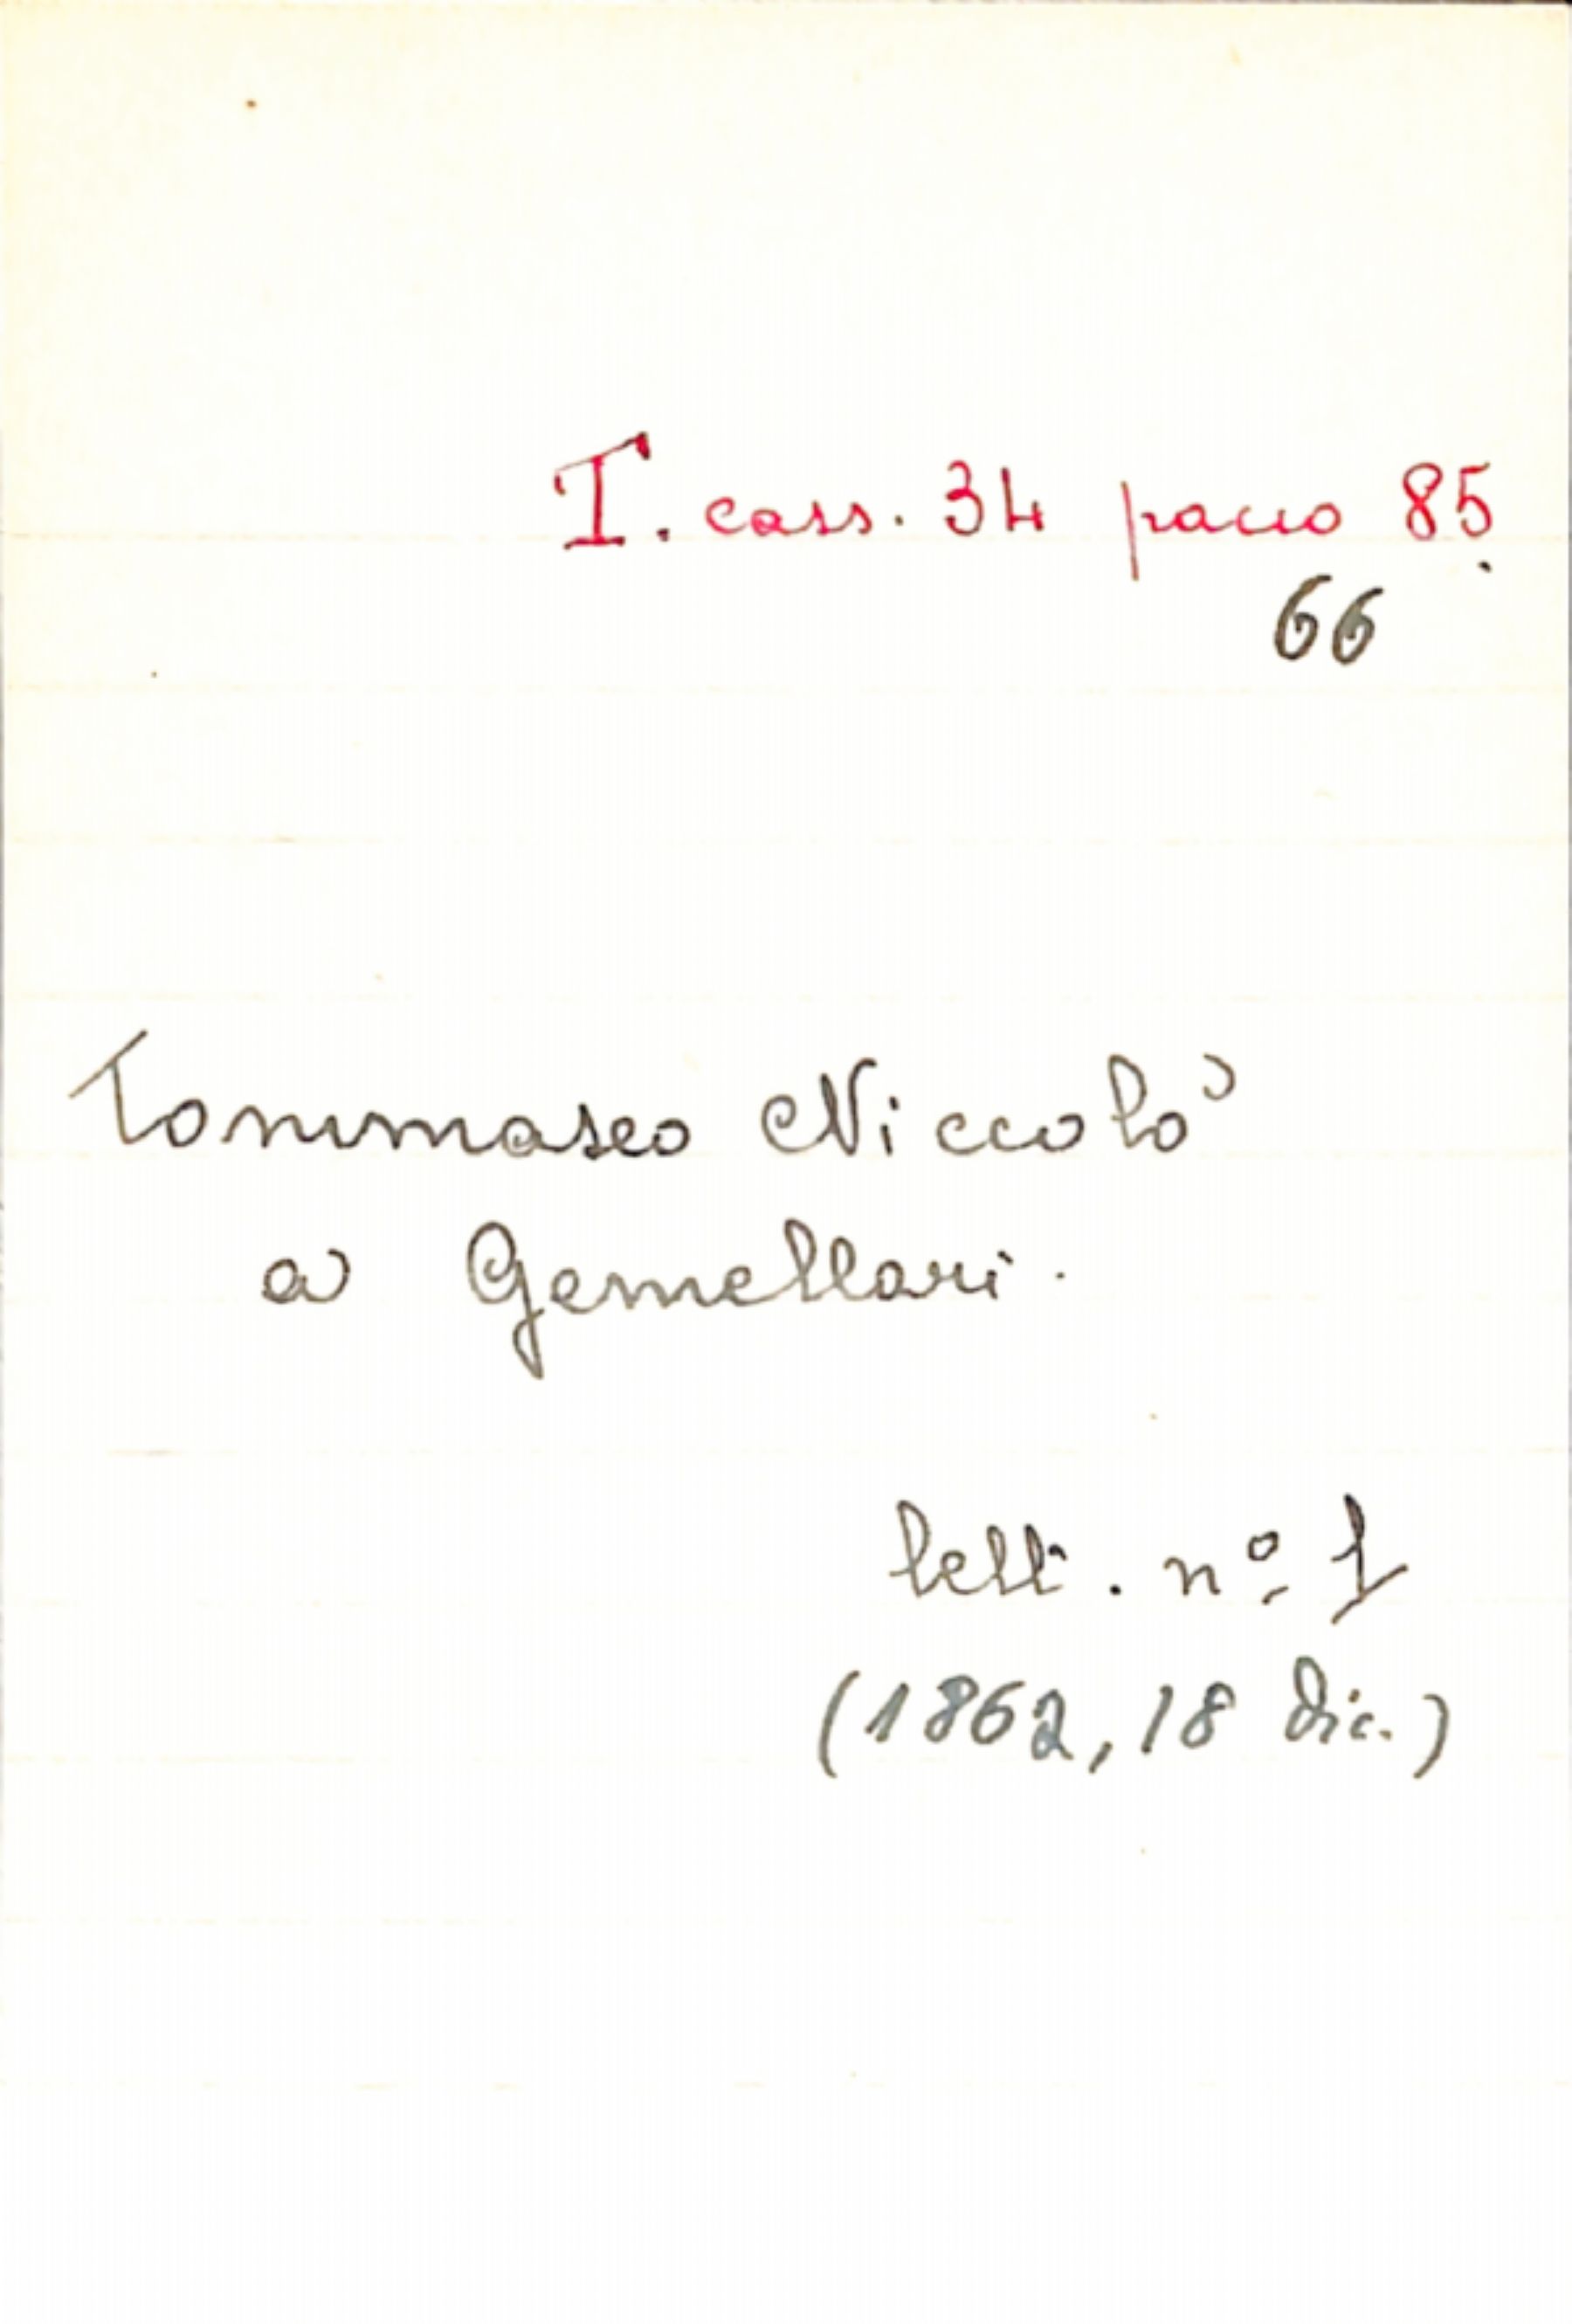 T. cass. 34 pacco 85
66
Tommaseo Niccolò
a Gemellari.
lett. nº 1
(1862, 18 dic.)